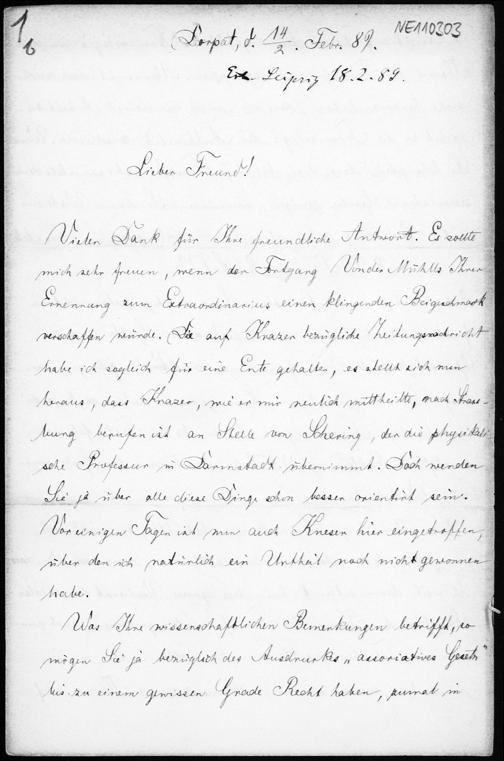 1
6
NE110303
Dorpat, d. 14/2. Febr. 89.
Leipzig 18.2.89.
Lieber Freund!
Vielen Dank für Ihre freundliche Antwort. Es sollte
mich sehr freuen, wenn der Fortgang Von der Mühlls Ihrer
Ernennung zum Extraordinarius einen klingenden Beigeschmack
verschaffen würde. Die auf Krazer bezügliche Zeitungsnachricht
habe ich sogleich für eine Ente gehalten, es stellt sich nun
heraus, dass Krazer, wie er mir neulich mittheilte, nach Strass-
burg berufen ist an Stelle von Schering, der die physikali-
sche Professur in Darmstadt übernimmt. Doch werden
Sie ja über alle diese Dinge schon besser orientirt sein.
Vor einigen Tagen ist nun auch Kneser hier eingetroffen,
über den ich natürlich ein Urtheil noch nicht gewonnen
habe.
Was Ihre wissenschaftlichen Bemerkungen betrifft, so
mögen Sie ja bezüglich des Ausdruckes „associatives Gesetz"
bis zu einem gewissen Grade Recht haben, zumal in